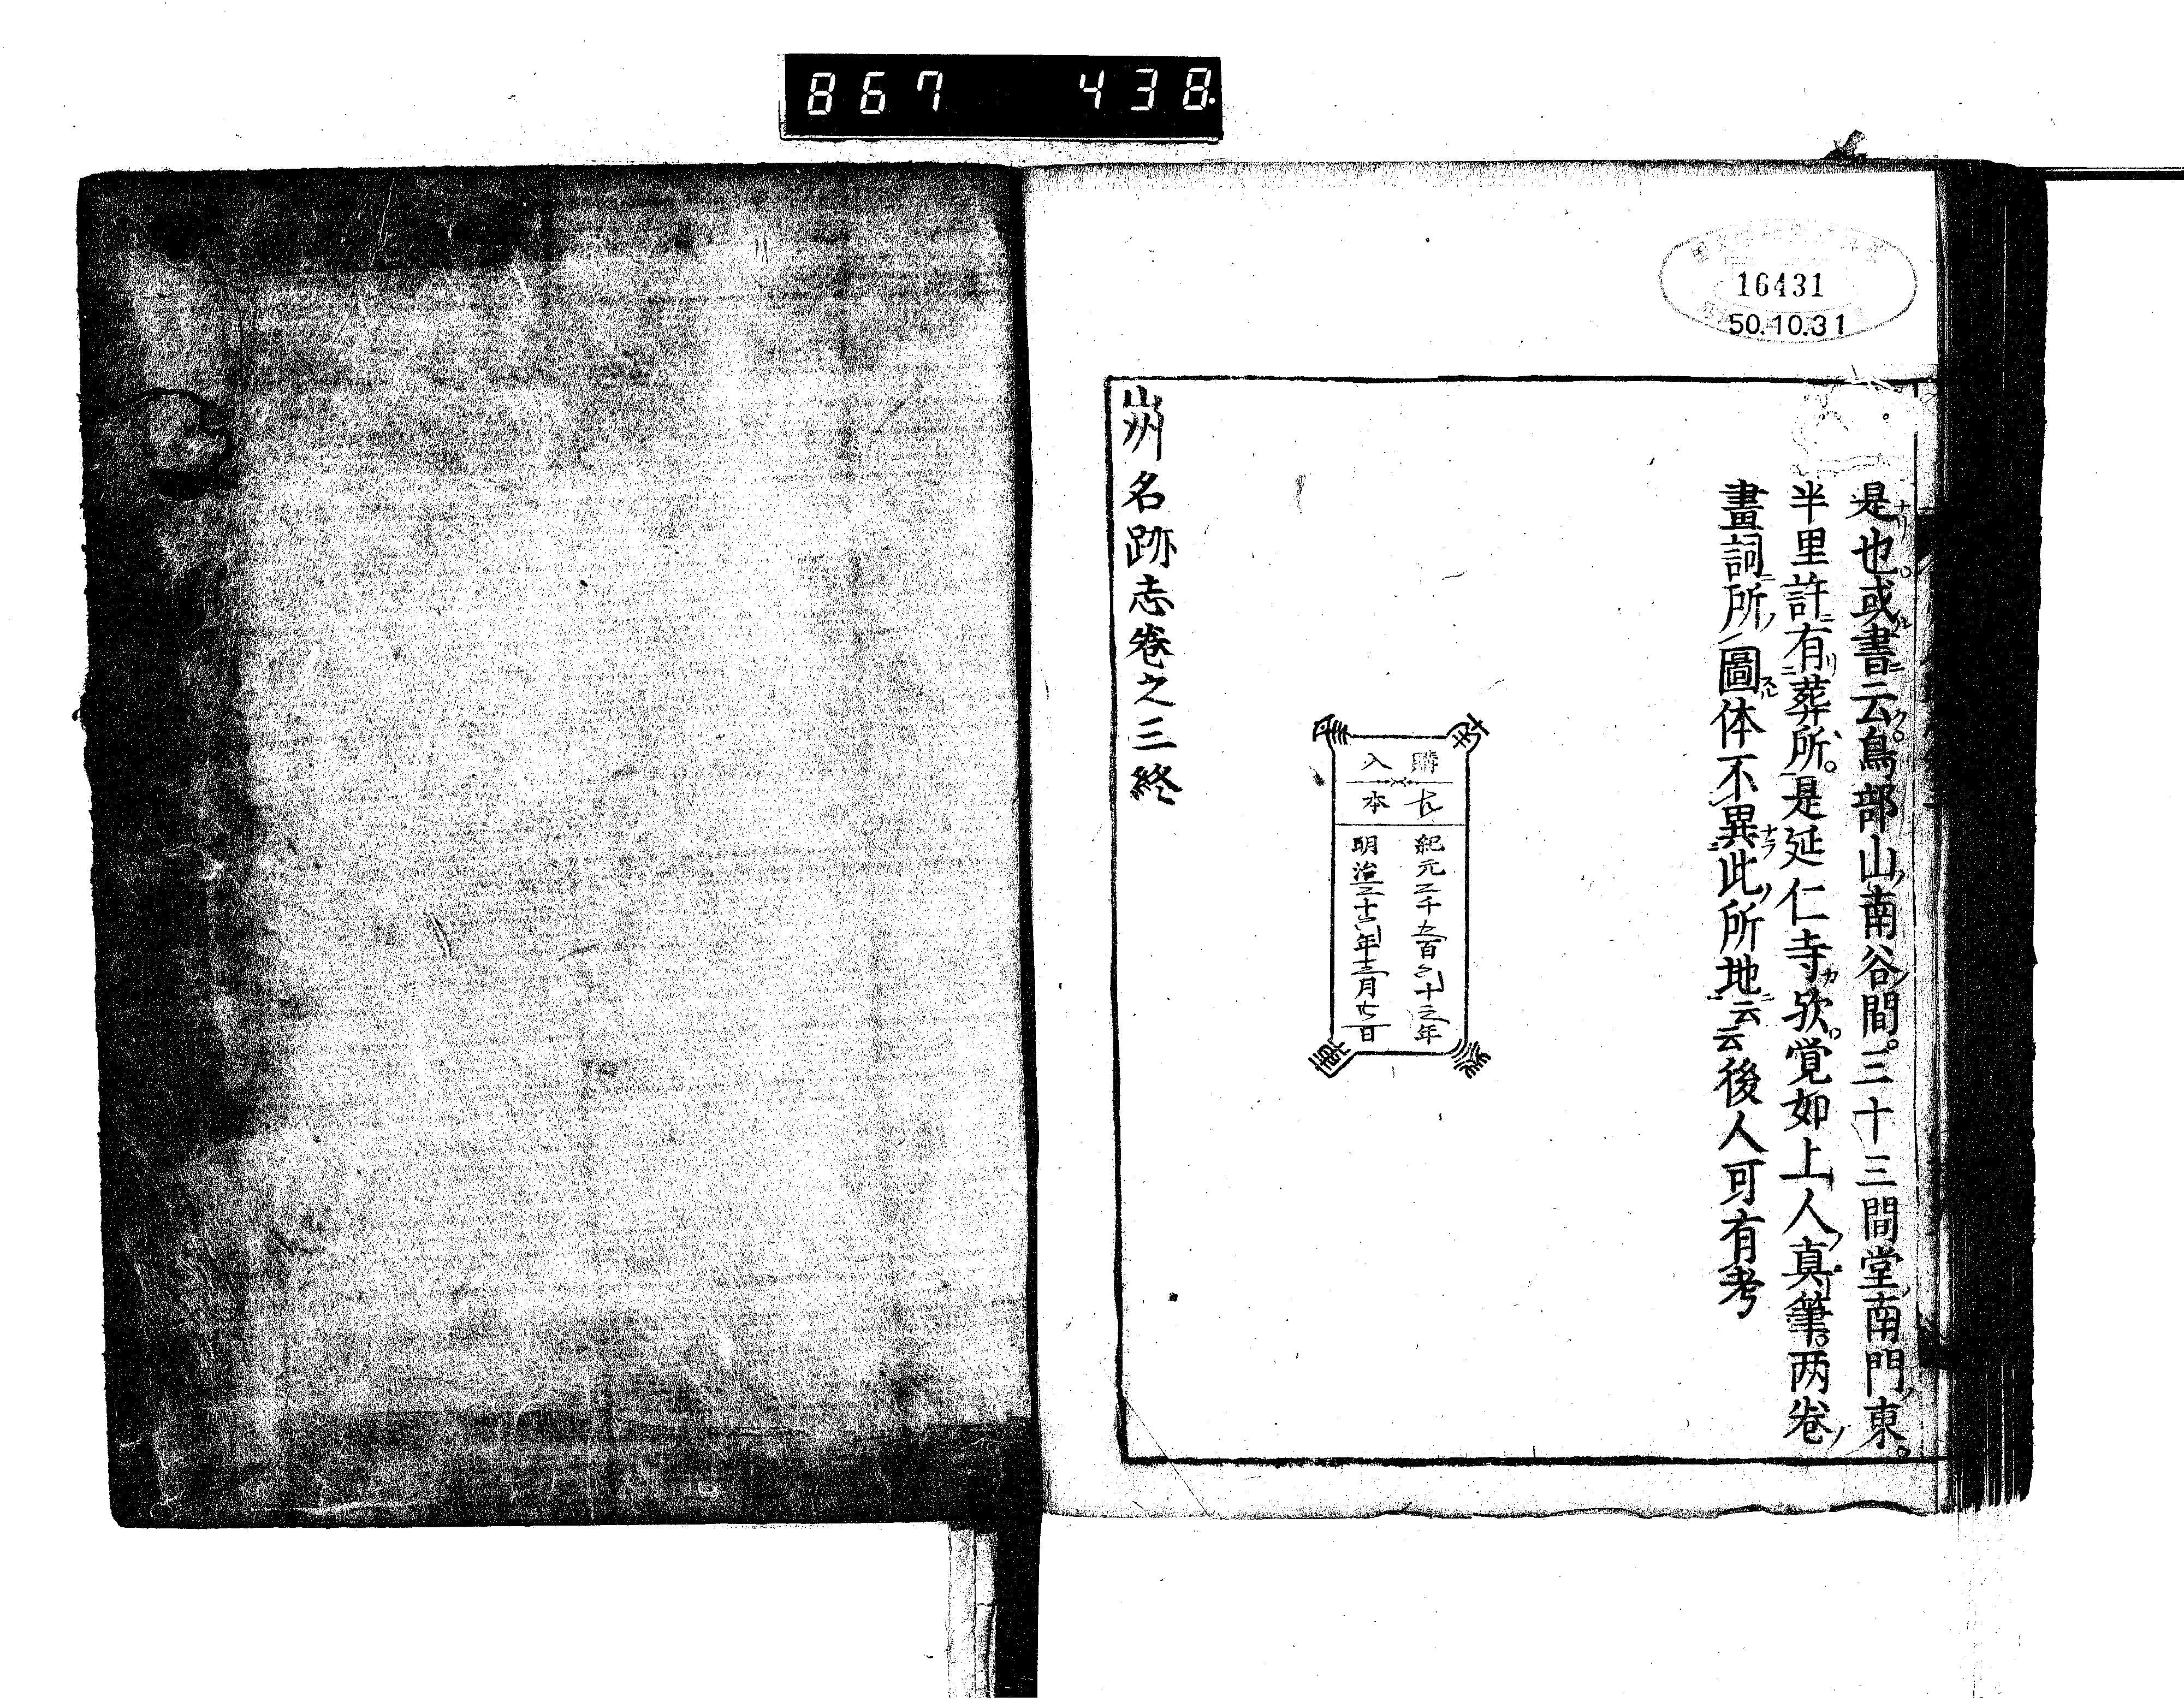 867 438
16431
50.10.31
是也。或書云。鳥部山南谷間。三十三間堂南門東
半里許有葬所。是延仁寺欤。覚如上人真筆。两卷
畫詞所圖体不異此所地云云後人可有考
購入
古本
紀元二千五百五十三年
明治二十六年十二月廿七日
山州名跡志卷之三終